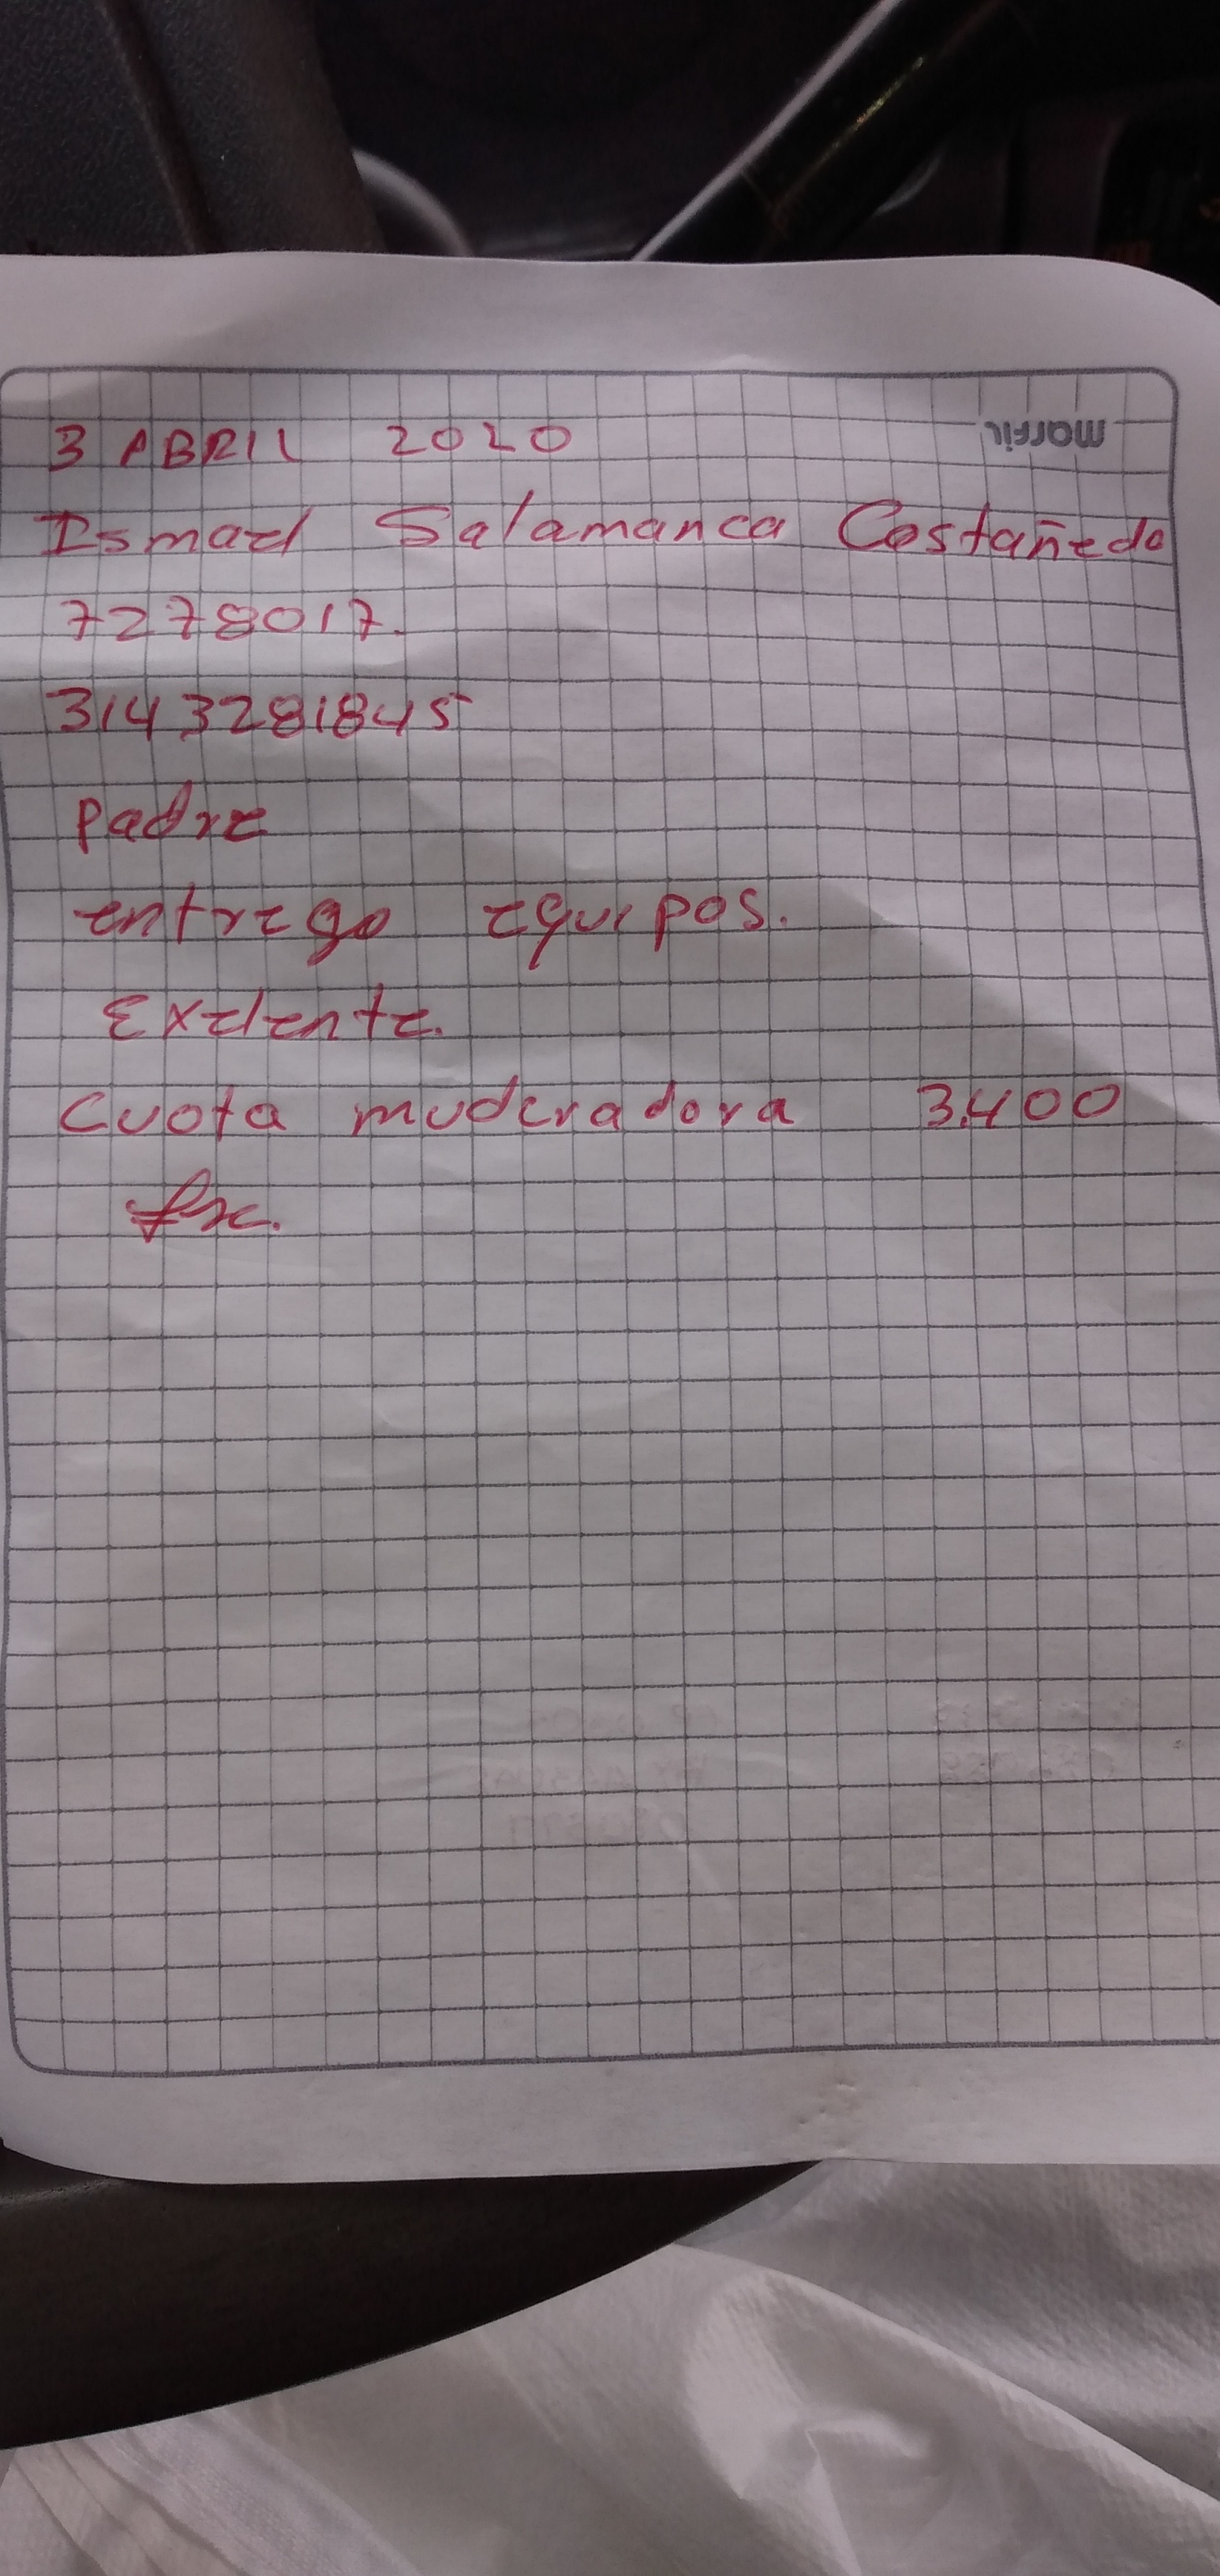 marfil
3 ABRIL 2020
Ismael Salamanca Costañeda
7278017.
3143281845
Padre
entrego equipos.
Exelente.
Cuota muderadora 3,400